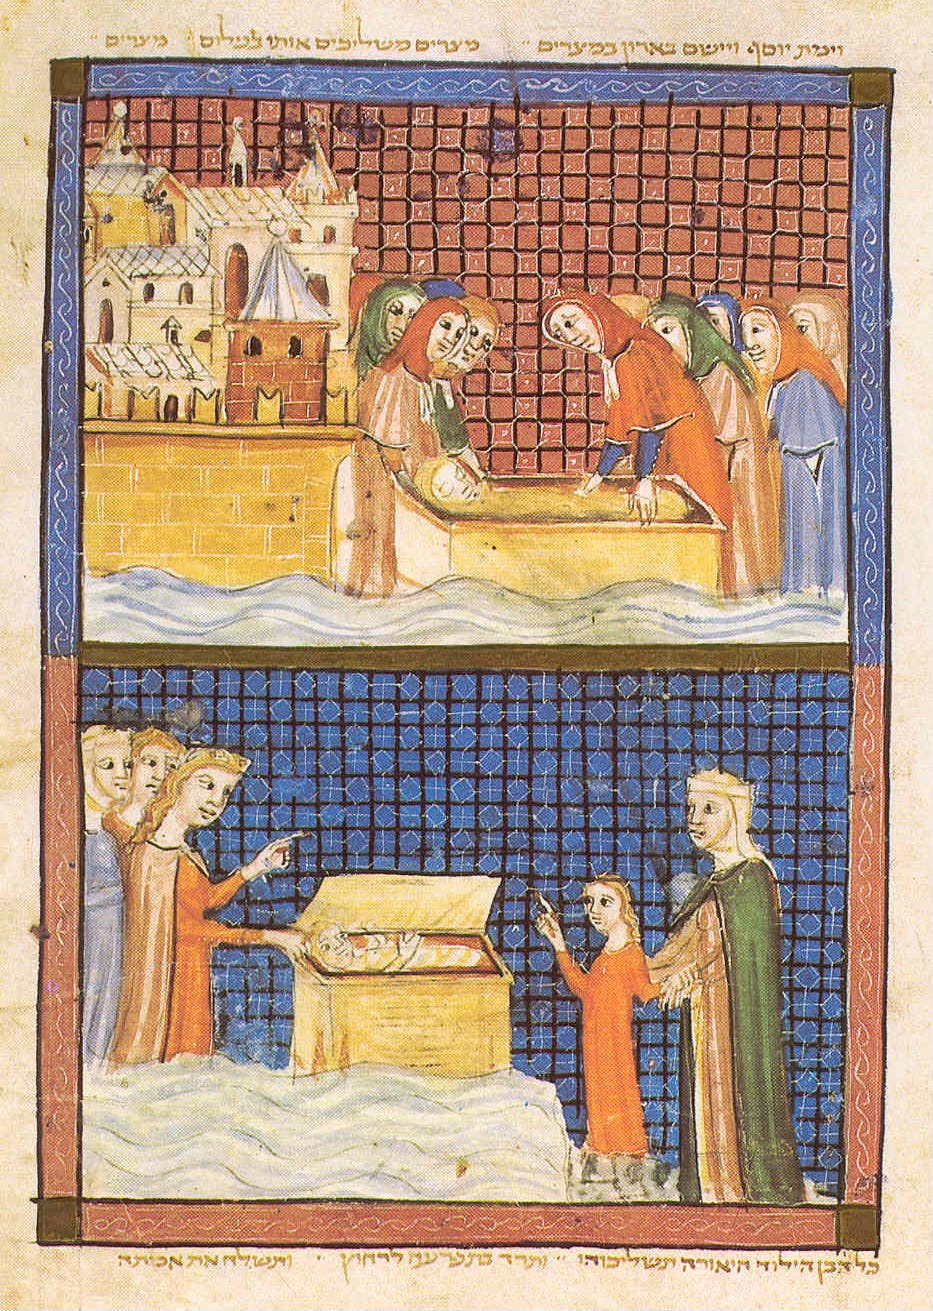 וימת יוסף ויישם בארון במצרים מצרים משליכים אותו בנילוס מצרים
כל הבן הילוד היאורה תשליכוהו ותרד בת פרעה לרחוץ ותשלח את אמתה